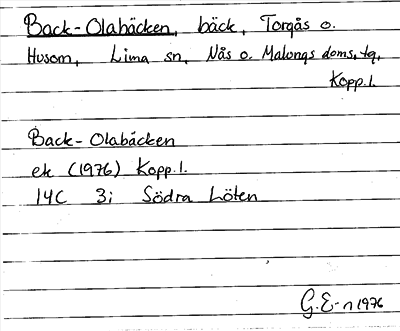 Back-Olabäcken, bäck, Torgås o.
Husom, Lima sn, Nås o. Malungs doms. tg,
Kopp. l.
Back-Olabäcken
ek (1976) Kopp. l.
14C 3i Södra Löten
G. E-n 1976